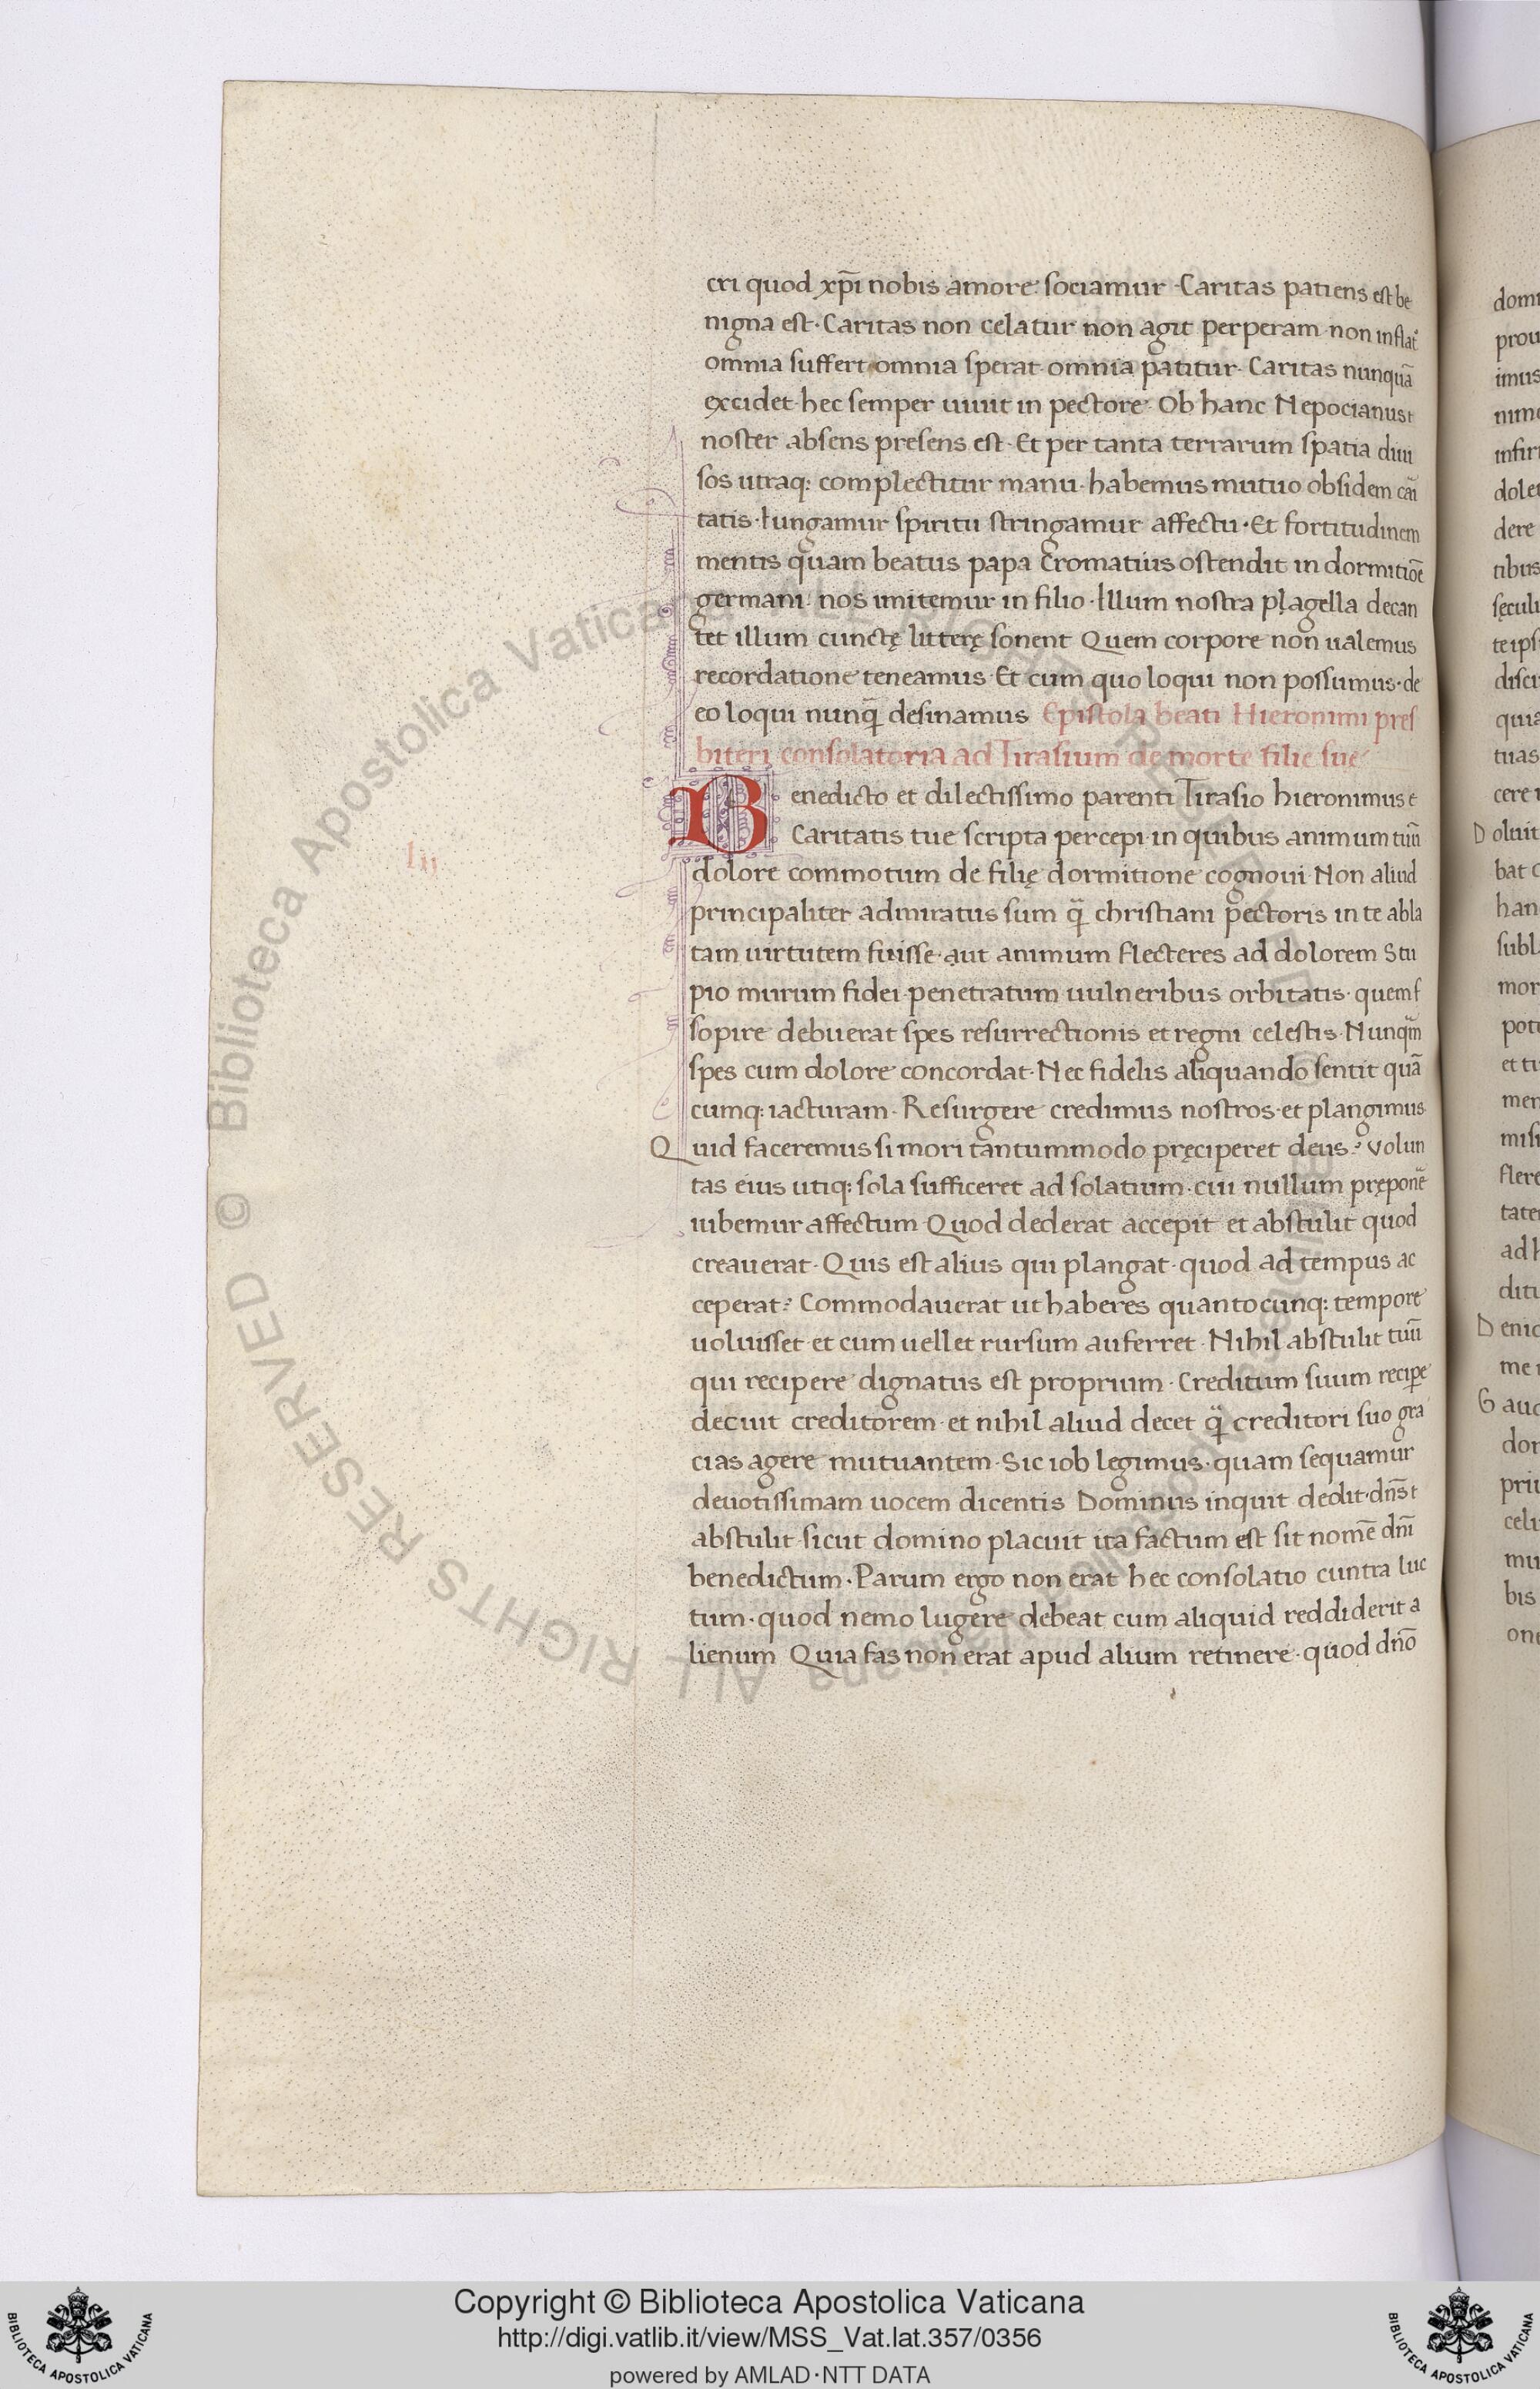 cri quod xp̄i nobis amore sociamur · Caritas patiens est be
nigna est · Caritas non celatur non agit perperam · non inflat̄
omnia suffert omnia sperat · omnia patitur · Caritas nunquā
excidet · hec semper uiuit in pectore · Ob hanc Nepocianus
noster absens presens est · Et per tanta terrarum spatia diui
sos utraq; complectitur manu · habemus mutuo obsidem cāi
tatis · Iungamur spiritu stringamur affectu · Et fortitudinem
mentis quam beatus papa Cromatius ostendit in dormitiōe
germani · nos imitemur in filio · Illum nostra plagella decan
tet illum cunctę litterę sonent Quem corpore non ualemus
recordatione teneamus · Et cum quo loqui non possumus · de
eo loqui nunq̄ desinamus Epistola beati Hieronimi pres
biteri consolatoria ad Tirasium de morte filie sue
Benedicto et dilectissimo parenti Tirasio hieronimus
Caritatis tue scripta percepi · in quibus animum tuū
lij
dolore commotum de filię dormitione cognoui · Non aliud
principaliter admiratus sum q̄ christiani pectoris in te abla
tam uirtutem fuisse · aut animum flecteres ad dolorem Stu
pio murum fidei penetratum uulneribus orbitatis · quem
sopire debuerat spes resurrectionis et regni celestis · Nunq̄m
spes cum dolore concordat · Nec fidelis aliquando sentit quā
cumq; iacturam · Resurgere credimus nostros · et plangimus
Quid faceremus si mori tantummodo pręciperet deus? Volun
tas eius utiq; sola sufficeret ad solatium · cui nullum pręponē
iubemur affectum Quod dederat accepit et abstulit quod
creauerat · Quis est alius qui plangat · quod ad tempus ac
ceperat? Commodauerat ut haberes quantocunq; tempore
uoluisset · et cum uellet rursum auferret · Nihil abstulit tuū
qui recipere dignatus est proprium · Creditum suum recipe
decuit creditorem · et nihil aliud decet q̄ creditori suo gra
cias agere mutuantem · Sic iob legimus · quam sequamur
deuotissimam uocem dicentis Dominus inquit dedit · dn̄s
abstulit · sicut domino placuit ita factum est sit nomē dn̄i
benedictum · Parum ergo non erat hec consolatio cuntra luc
tum · quod nemo lugere debeat cum aliquid reddiderit a
lienum Quia fas non erat apud alium retinere · quod dn̄o
Copyright © Biblioteca Apostolica Vaticana
http://digi.vatlib.it/view/MSS_Vat.lat.357/0356
powered by AMLAD·NTT DATA
BIBLIOTECA APOSTOLICA VATICANA
BIBLIOTECA APOSTOLICA VATICANA